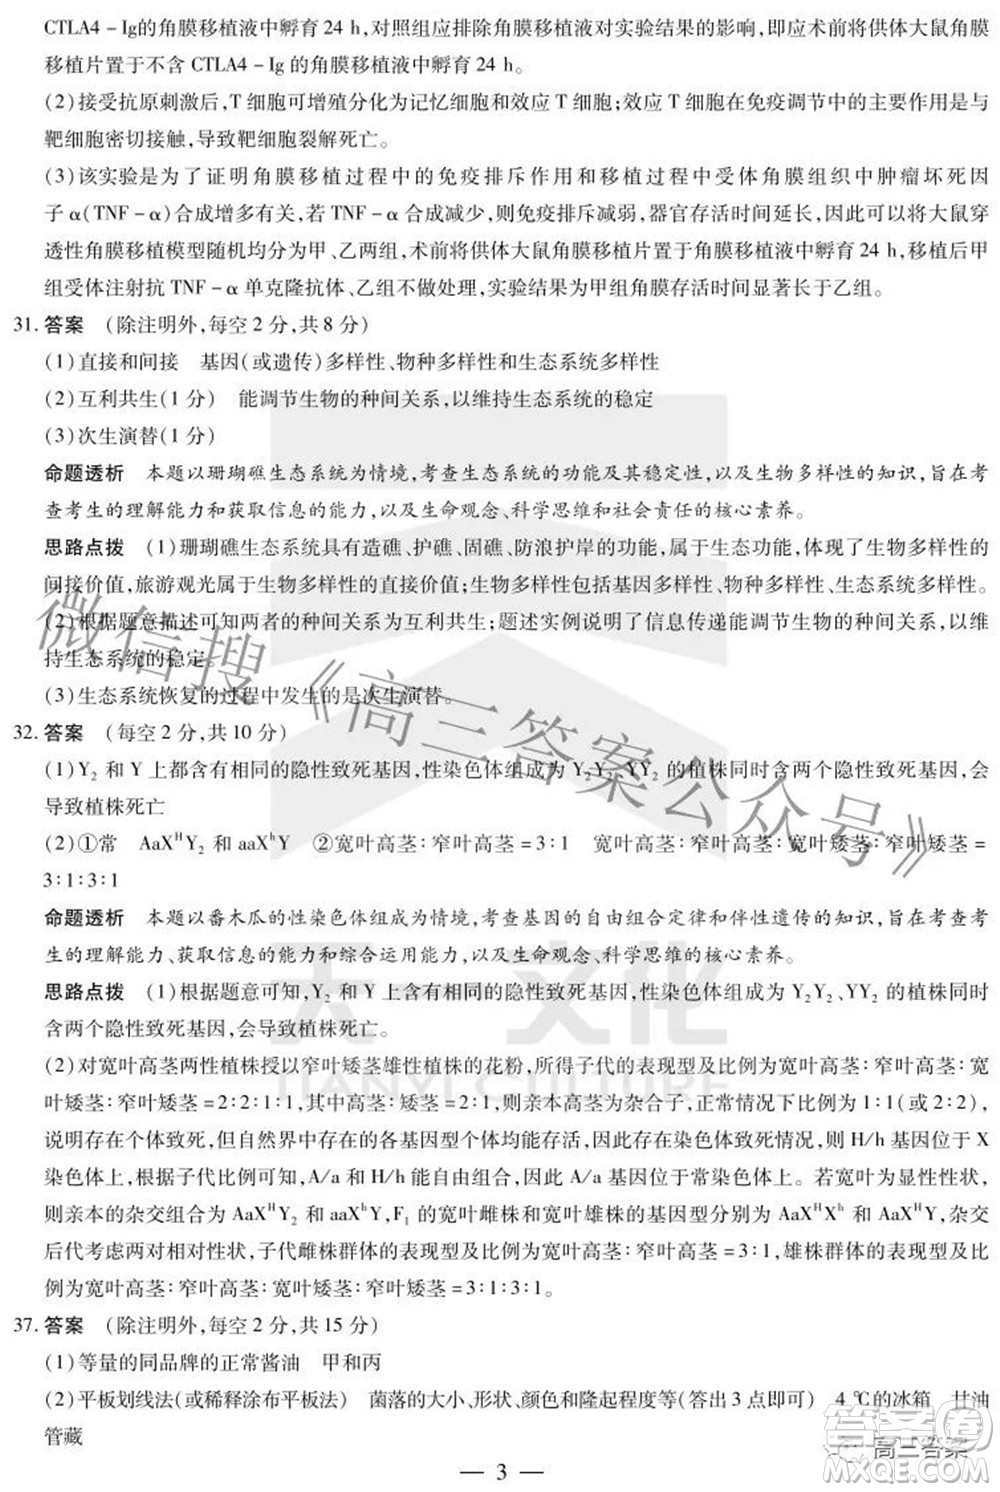 CTLA4-Ig的角膜移植液中孵育24 h,对照组应排除角膜移植液对实验结果的影响,即应术前将供体大鼠角膜
移植片置于不含 CTLA4-Ig 的角膜移植液中孵育24 h。
(2)接受抗原刺激后,T 细胞可增殖分化为记忆细胞和效应 T 细胞;效应 T 细胞在免疫调节中的主要作用是与
靶细胞密切接触,导致靶细胞裂解死亡。
(3)该实验是为了证明角膜移植过程中的免疫排斥作用和移植过程中受体角膜组织中肿瘤坏死因
子 α(TNF-α)合成增多有关,若 TNF-α 合成减少,则免疫排斥减弱,器官存活时间延长,因此可以将大鼠穿
透性角膜移植模型随机均分为甲、乙两组,术前将供体大鼠角膜移植片置于角膜移植液中孵育 24 h,移植后甲
组受体注射抗 TNF-α 单克隆抗体、乙组不做处理,实验结果为甲组角膜存活时间显著长于乙组。
31. 答案 (除注明外,每空 2 分,共 8 分)
(1)直接和间接 基因(或遗传)多样性、物种多样性和生态系统多样性
(2)互利共生(1 分) 能调节生物的种间关系,以维持生态系统的稳定
(3)次生演替(1 分)
命题透析 本题以珊瑚礁生态系统为情境,考查生态系统的功能及其稳定性,以及生物多样性的知识,旨在考
查考生的理解能力和获取信息的能力,以及生命观念、科学思维和社会责任的核心素养。
思路点拨 (1)珊瑚礁生态系统具有造礁、护礁、固礁、防浪护岸的功能,属于生态功能,体现了生物多样性的
间接价值,旅游观光属于生物多样性的直接价值;生物多样性包括基因多样性、物种多样性、生态系统多样性。
(2)根据题意描述可知两者的种间关系为互利共生;题述实例说明了信息传递能调节生物的种间关系,以维
持生态系统的稳定。
(3)生态系统恢复的过程中发生的是次生演替。
32. 答案 (每空 2 分,共 10 分)
(1)Y₂ 和 Y 上都含有相同的隐性致死基因,性染色体组成为 Y₂Y₂、YY₂ 的植株同时含两个隐性致死基因,会
导致植株死亡
(2)①常 AaXᴴY₂ 和 aaXʰY ②宽叶高茎∶窄叶高茎=3∶1 宽叶高茎∶窄叶高茎∶宽叶矮茎∶窄叶矮茎=
3∶1∶3∶1
命题透析 本题以番木瓜的性染色体组成为情境,考查基因的自由组合定律和伴性遗传的知识,旨在考查考
生的理解能力、获取信息的能力和综合运用能力,以及生命观念、科学思维的核心素养。
思路点拨 (1)根据题意可知,Y₂ 和 Y 上含有相同的隐性致死基因,性染色体组成为 Y₂Y₂、YY₂ 的植株同时
含两个隐性致死基因,会导致植株死亡。
(2)对宽叶高茎两性植株授以窄叶矮茎雄性植株的花粉,所得子代的表现型及比例为宽叶高茎∶窄叶高茎∶宽
叶矮茎∶窄叶矮茎=2∶2∶1∶1,其中高茎∶矮茎=2∶1,则亲本高茎为杂合子,正常情况下比例应为 1∶1(或 2∶2),
说明存在个体致死,但自然界中存在的各基因型个体均能存活,因此存在染色体致死情况,则 H/h 基因位于 X
染色体上。根据子代比例可知,A/a 和 H/h 能自由组合,因此 A/a 基因位于常染色体上。若宽叶为显性性状,
则亲本的杂交组合为 AaXᴴY₂ 和 aaXʰY,F₁ 的宽叶雌株和宽叶雄株的基因型分别为 AaXᴴXʰ 和 AaXʰY₂,杂交
后代考虑两对相对性状,子代雌株群体的表现型及比例为宽叶高茎∶窄叶高茎=3∶1,雄株群体的表现型及比
例为宽叶高茎∶窄叶高茎∶宽叶矮茎∶窄叶矮茎=3∶1∶3∶1。
37. 答案 (除注明外,每空 2 分,共 15 分)
(1)等量的同品牌的正常酱油 甲和丙
(2)平板划线法(或稀释涂布平板法) 菌落的大小、形状、颜色和隆起程度等(答出 3 点即可) 4 ℃的冰箱 甘油
管藏
— 3 —
微信搜《高三答案公众号》
天一文化
TIANYI CULTURE
高三答案
答案圈
MXQE.COM